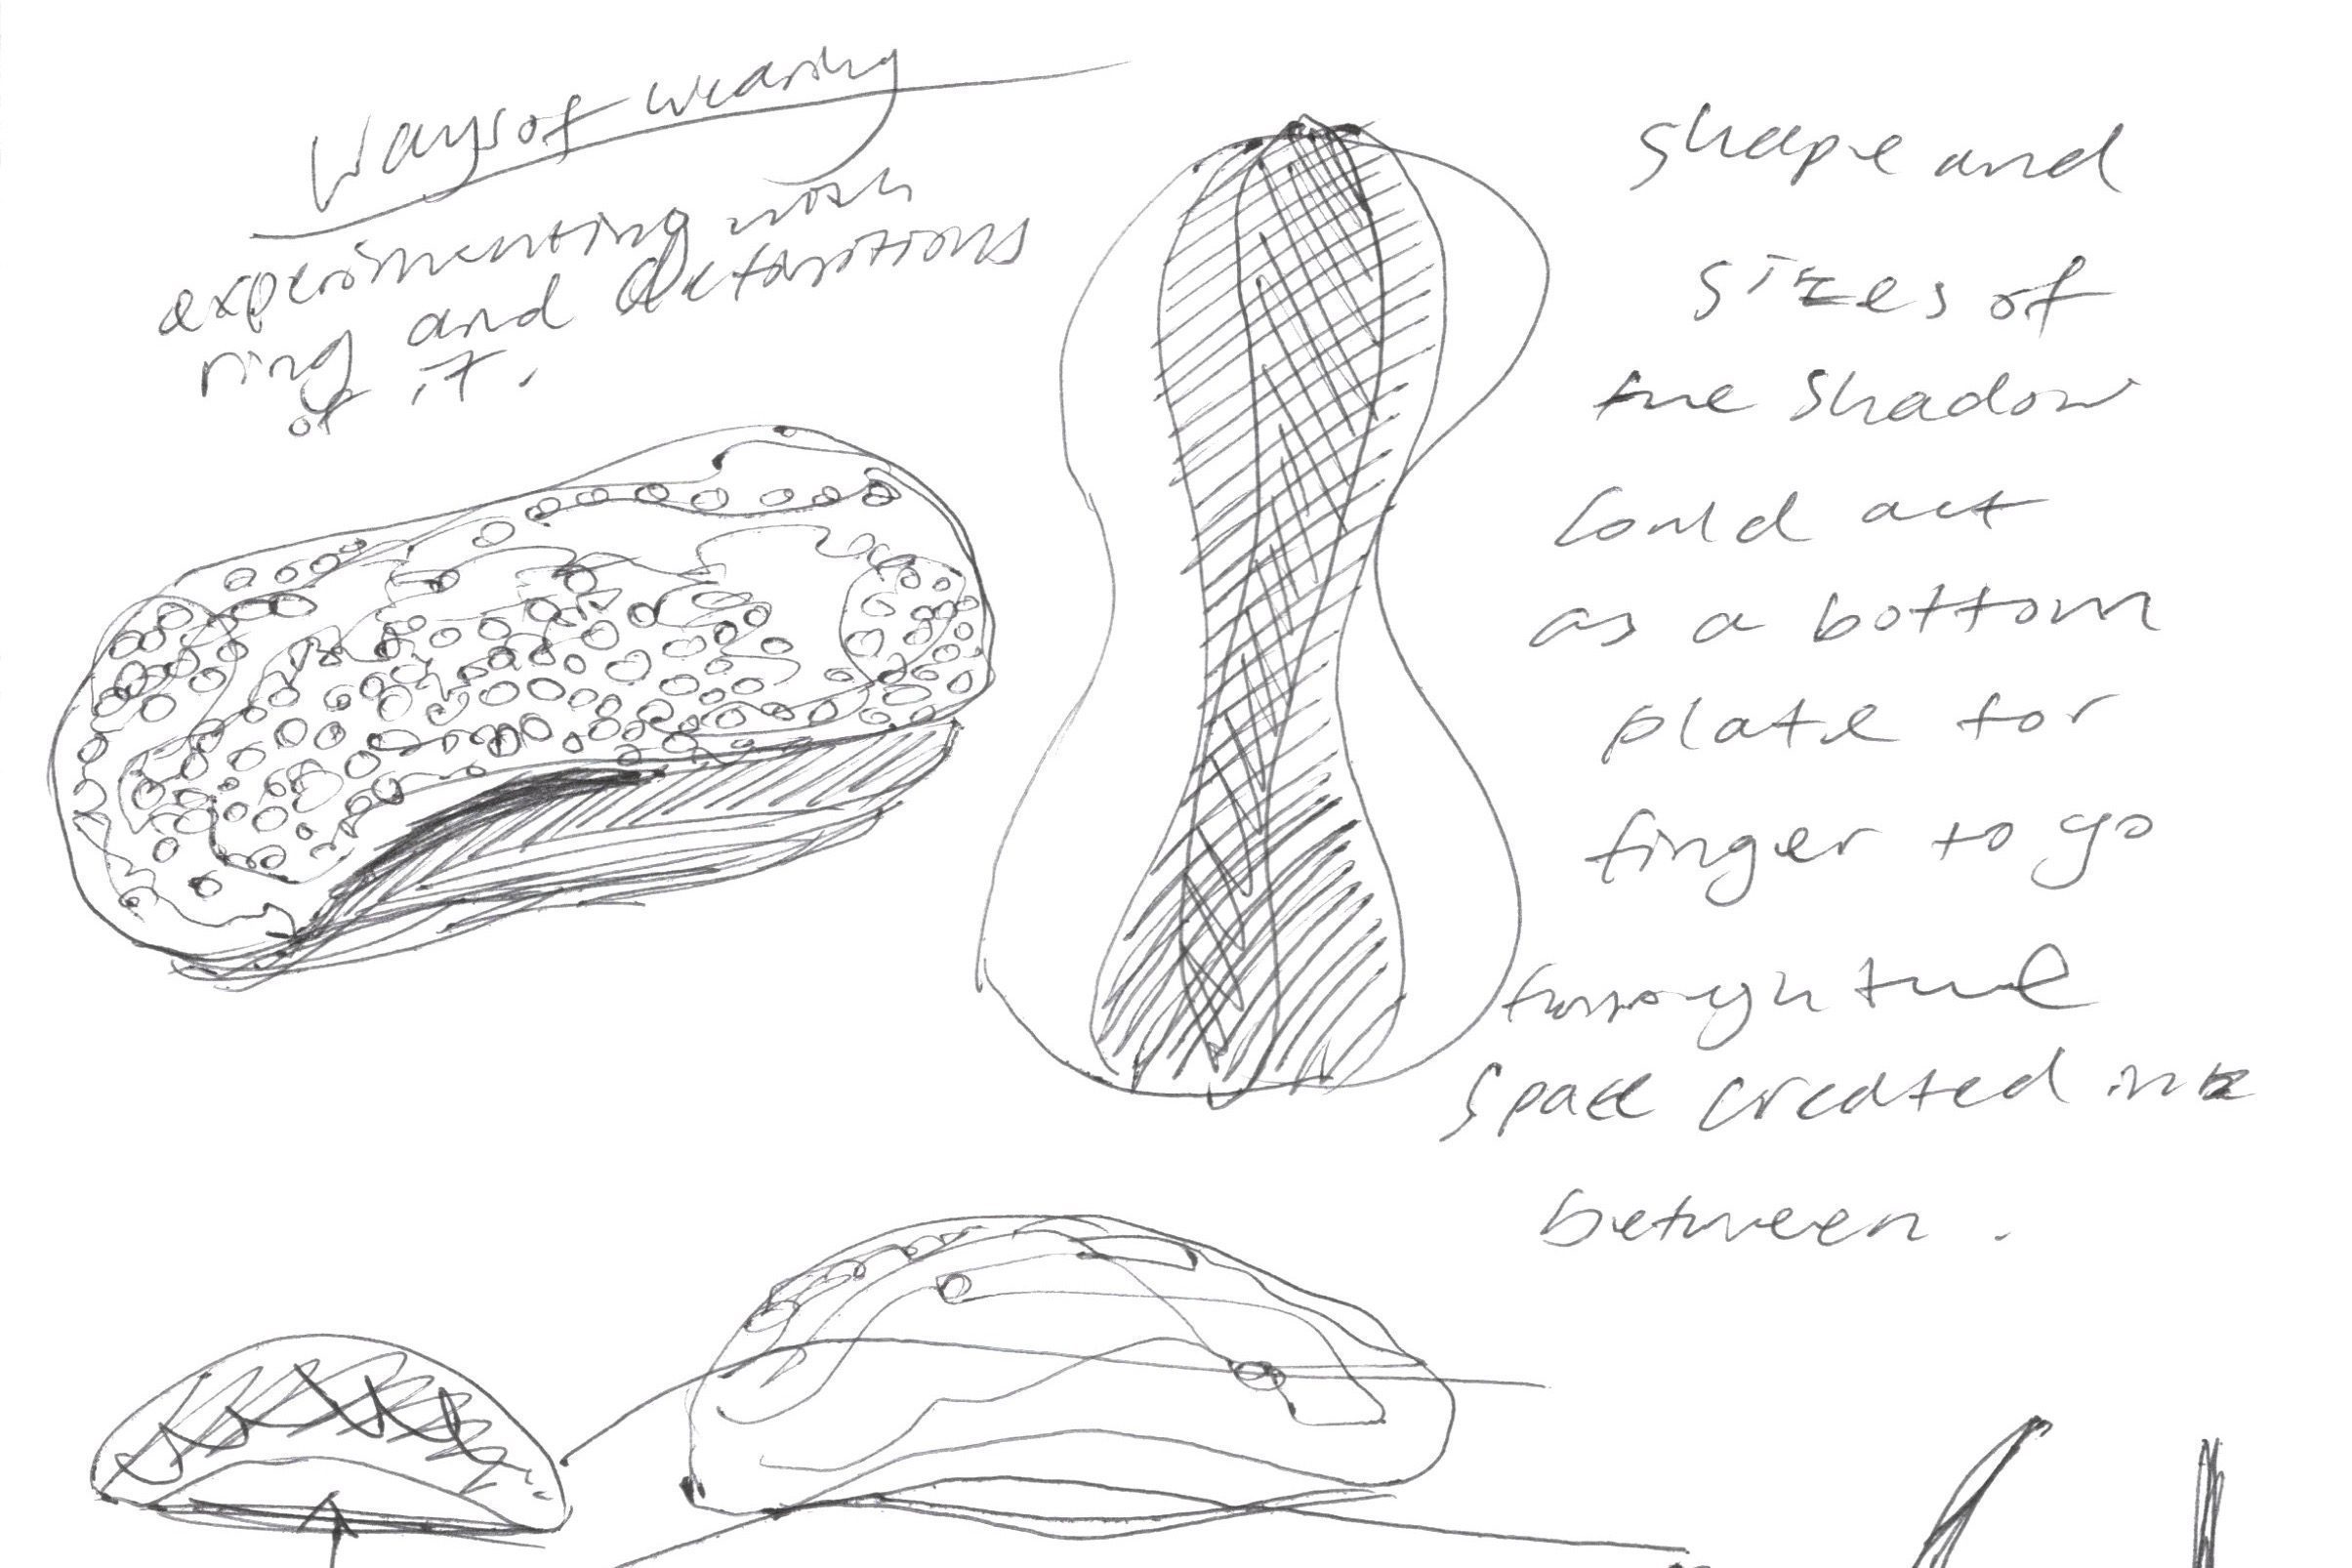 Ways of wearing
experimenting with
ring and defanitions
of it.
shape and
sizes of
the shadow
could act
as a bottom
plate for
finger to go
through the
space created in
between.